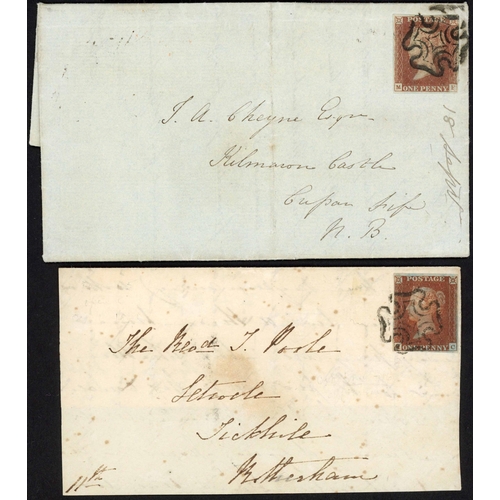 POSTAGE
ONE PENNY
J. A. Cheyne Esqre
Kilmaron Castle
Cupar Fife
N. B.
18 Sept
POSTAGE
ONE PENNY
The Revd J. Poole
Letwele
Tickhile
Rotherham
11th